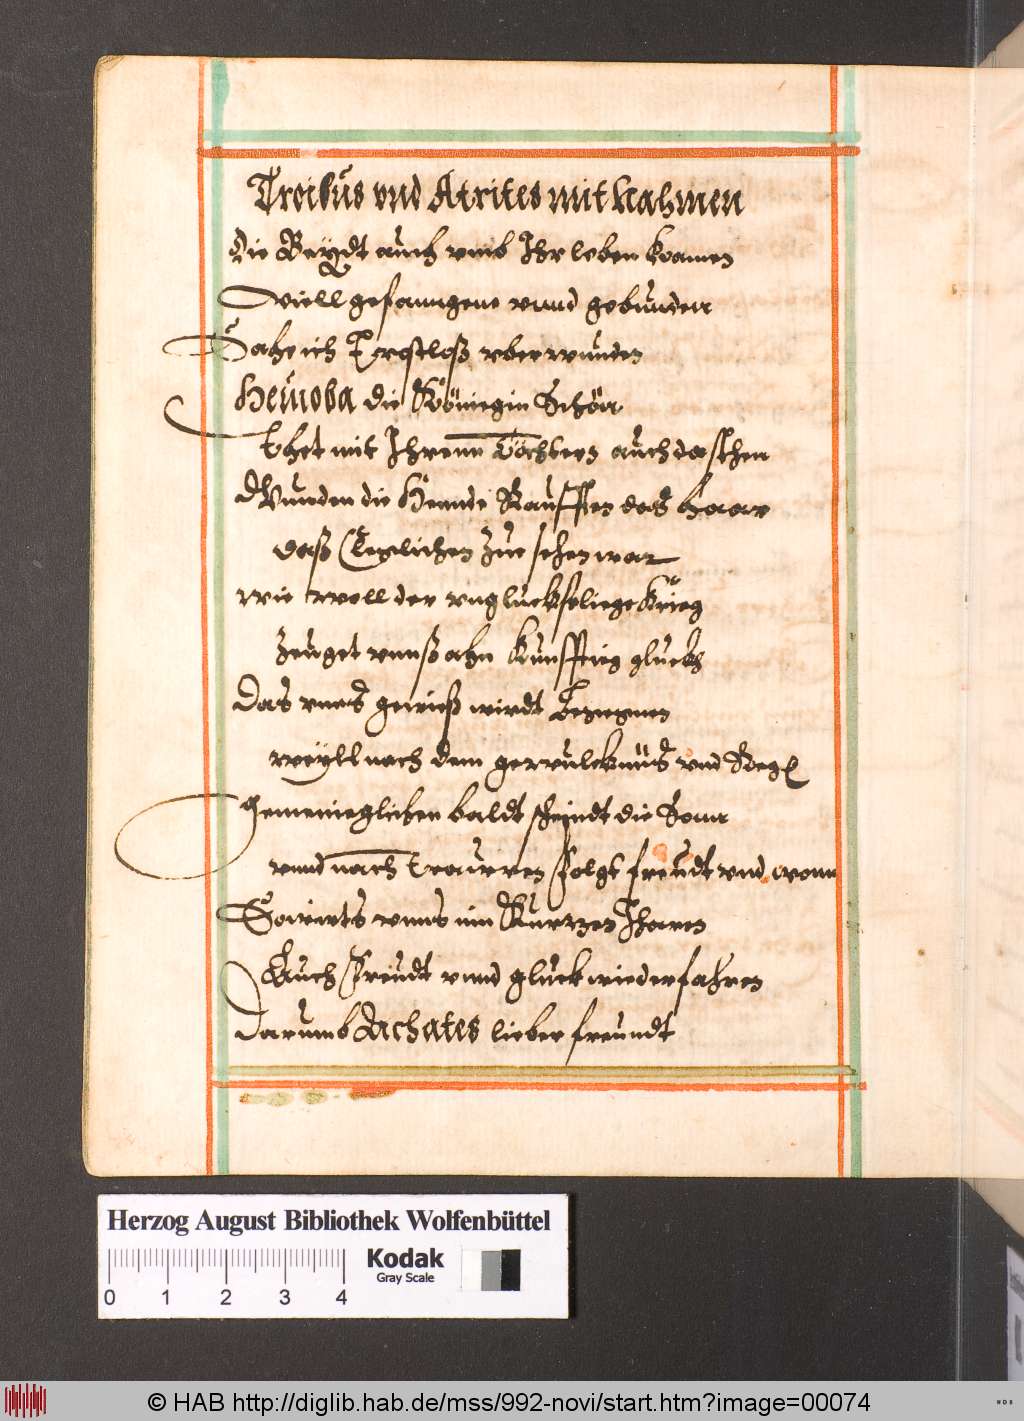 Troilus vnd Atrites mit Nahmen
die Beÿdt auch vmb Ihr leben kamen
viell gefanngene vnnd gebunden
Sahe ich Trostloß vberwunden
Hecuba die Königin Schön
Thet mit Ihrenn Töchtern auch da sthen
Wunden die Hennde Raufften das haar
daß Cleglichen Zue sehen war
wie woll der vngluckseliege Krieg
Zeuget vnnß ahn kunfftieg glückh
Das vnns gewieß wirdt
weÿll nach dem gewulcknüs vnd Regen
Gemeinieglichen baldt scheindt die Sonn
vnnd nach traurren folgt freudt vnd wonn
So wirts vnns inn Kurtzen Jharen
Auch freudt vnnd gluck wiederfahren
Darumb Achates lieber freundt
Herzog August Bibliothek Wolfenbüttel
Kodak
Gray Scale
0 1 2 3 4
© HAB http://diglib.hab.de/mss/992-novi/start.htm?image=00074